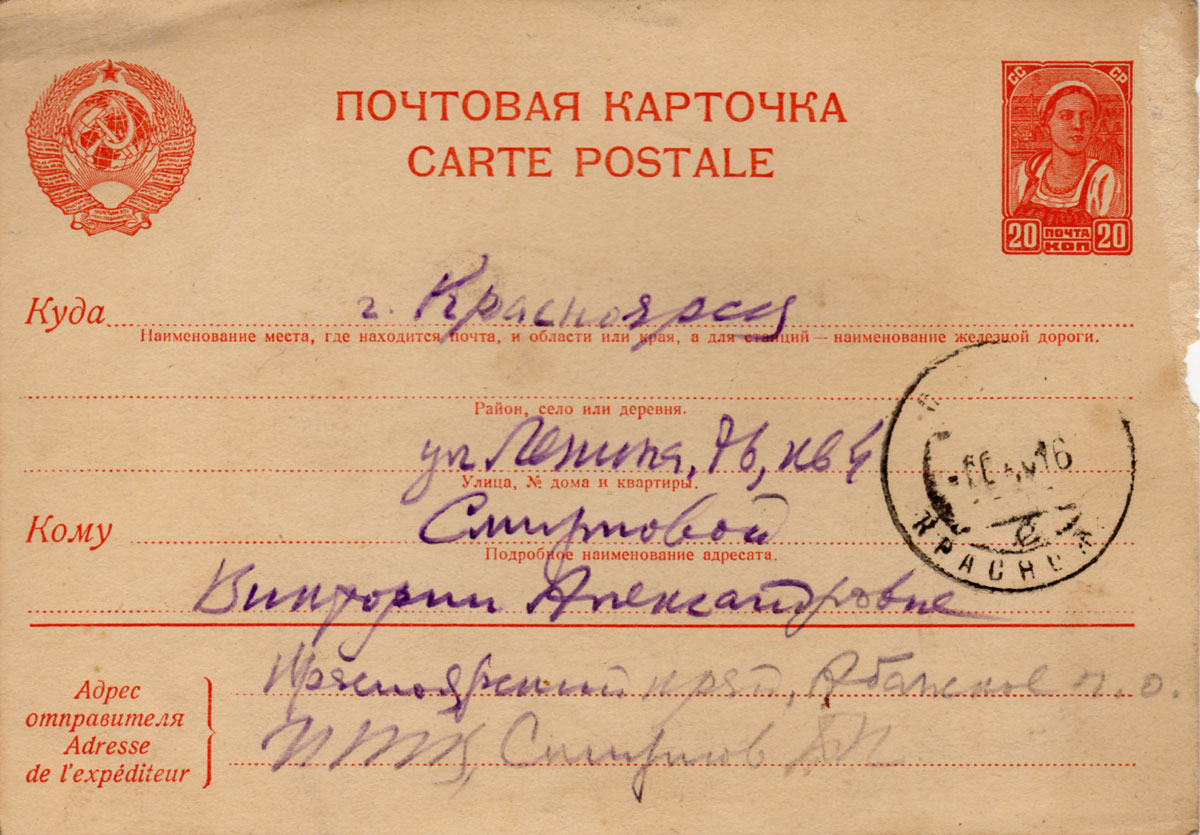 ПОЧТОВАЯ КАРТОЧКА
CARTE POSTALE
СС СР
20 ПОЧТА КОП 20
Куда г. Красноярск
Наименование места, где находится почта, и области или края, а для станций — наименование железной дороги.
Район, село или деревня.
ул Ленина, 76, кв 4
Улица, № дома и квартиры.
Кому Смирновой
Подробное наименование адресата.
Виктории Александровне
КРАСНОЯ
Адрес отправителя
Adresse de l'expéditeur
Красноярский край, Абанское п. о.
Смирнов